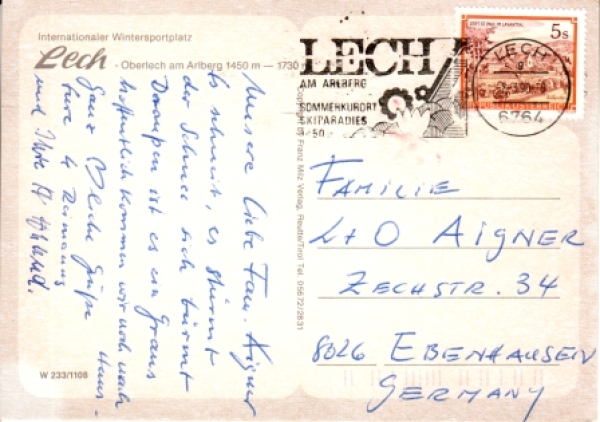 Internationaler Wintersportplatz
Lech - Oberlech am Arlberg 1450 m — 1730 m
LECH
AM ARLBERG
SOMMERKURORT
SKIPARADIES
LECH
6764
5 s
Copyright by Franz Milz Verlag, Reutte/Tirol Tel. 05672/2831
Unsere liebe Fam. Aigner
Es schneit, es stürmt
der Schnee sich türmt
Draußen ist es ein Graus
hoffentlich kommen wir noch nach Haus.
Ganz liebe Grüße
Eure
und
FAMILIE
L+O AIGNER
ZECHSTR. 34
8026 EBENHAUSEN
GERMANY
W 233/1108